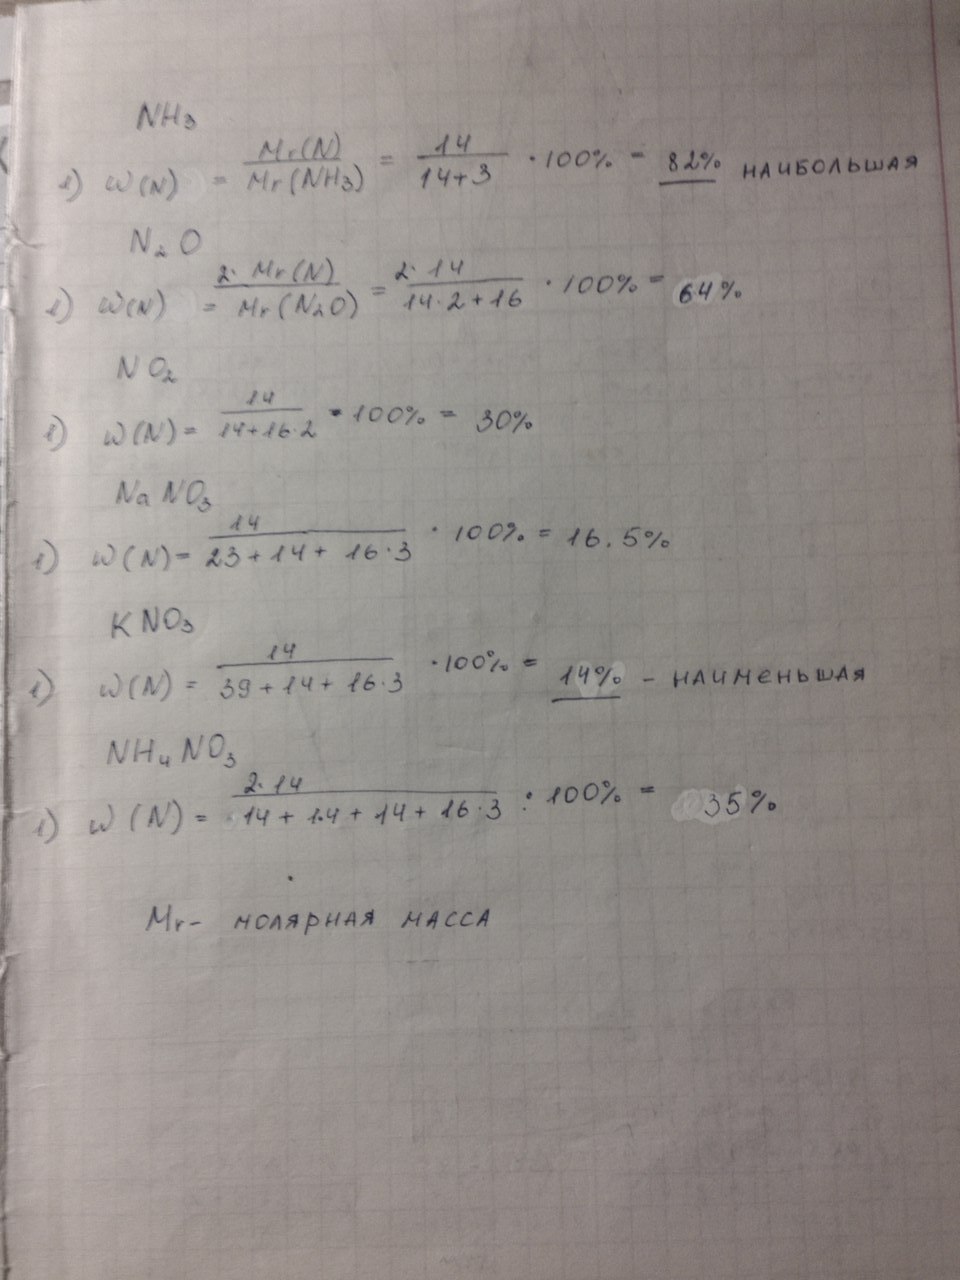 NH₃
1) W(N) = Mr(N)/Mr(NH3) = 14/14+3 · 100% = 82% НАИБОЛЬШАЯ
N₂O
1) W(N) = 2· Mr(N)/Mr(N₂O) = 2· 14/14·2+16 · 100% = 64%
NO₂
1) W(N) = 14/14+16·2 · 100% = 30%
NaNO₃
1) W(N) = 14/23+14+ 16·3 · 100% = 16.5%
KNO₃
1) W(N) = 14/39+14+ 16·3 · 100% = 14% - НАИМЕНЬШАЯ
NH₄NO₃
1) W(N) = 2·14/14+1·4+14+16·3 · 100% = 35%
Mr- МОЛЯРНАЯ МАССА